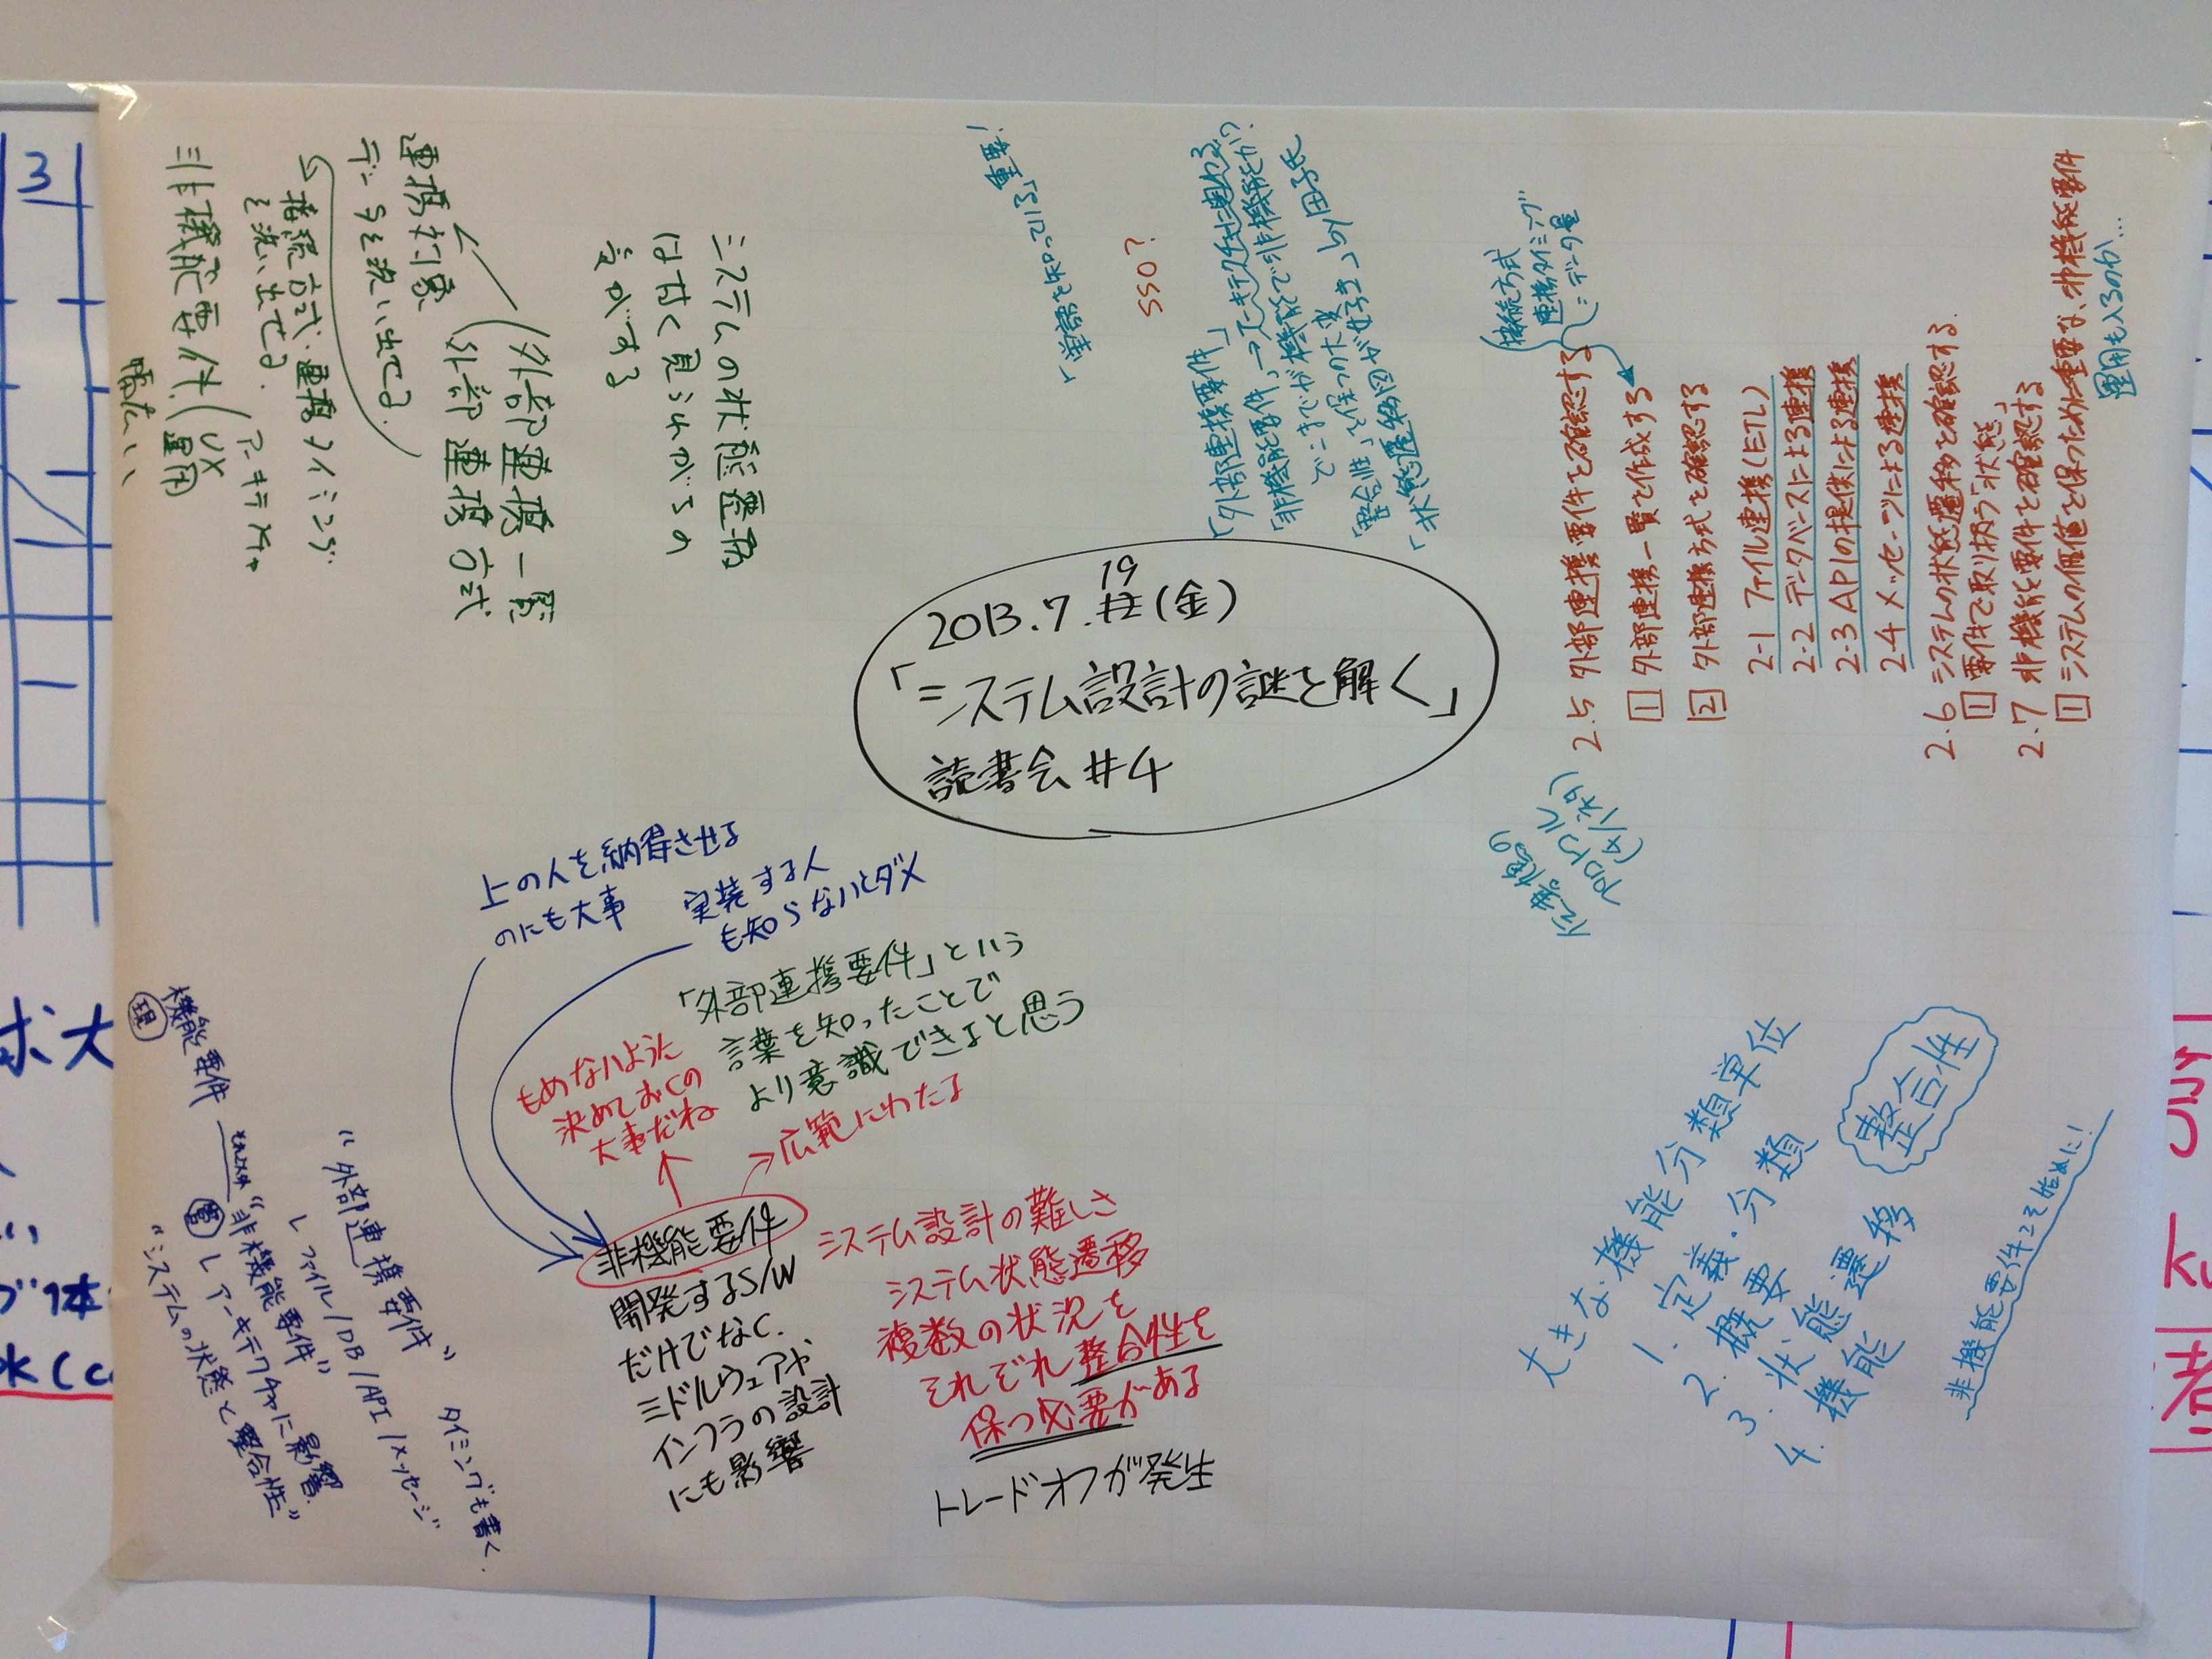 19
2013.7.(金)
「システム設計の謎を解く」
読書会 #4
2.5 外部連携要件を確認する
1 外部連携一覧を作成する
2 外部連携方式を確認する
2-1 ファイル連携(ETL)
2-2 データベースによる連携
2-3 APIの提供による連携
2-4 メッセージによる連携
2.6 システムの状態遷移を確認する.
1 要件で取り扱う「状態」
2.7 非機能要件を確認する
1 システムの価値を保つために重要な、非機能要件
運用も入るのか...
接続方式
連携タイミング
データ量
プロトコル
「外部連携要件」
「非機能要件」→アーキテクチャに関わる
どこまでが機能で非機能か?
「整合性」を保つの大変
「状態遷移図が好き」by 田子氏
SSO?
「業務を知っている」重要!
システムの状態遷移
は甘く見られがちの
気がする
外部連携一覧
外部連携方式
連携対象
データを洗い出せる
接続方式、連携タイミング
を洗い出せる.
非機能要件.
UX
運用
アーキテクチャ
幅広い
上の人を納得させる
のにも大事
実装する人
も知らないとダメ
「外部連携要件」という
言葉を知ったことで
より意識できるよと思う
もめないように
決めておくの
大事だね
広範にわたる
非機能要件
開発するS/W
だけでなく、
ミドルウェアや、
インフラの設計
にも影響
システム設計の難しさ
システム状態遷移
複数の状況を
それぞれ整合性を
保つ必要がある
トレードオフが発生
機能要件
現
それ以外
"非機能要件"
アーキテクチャに影響.
"システムの状態と整合性"
"外部連携要件"
ファイル/DB/API/メッセージ
タイミングも書く.
大きな機能分類単位
1. 定義・分類
2. 概要
3. 状態遷移
4. 機能
整合性
非機能要件こそ始めに!
3
求大